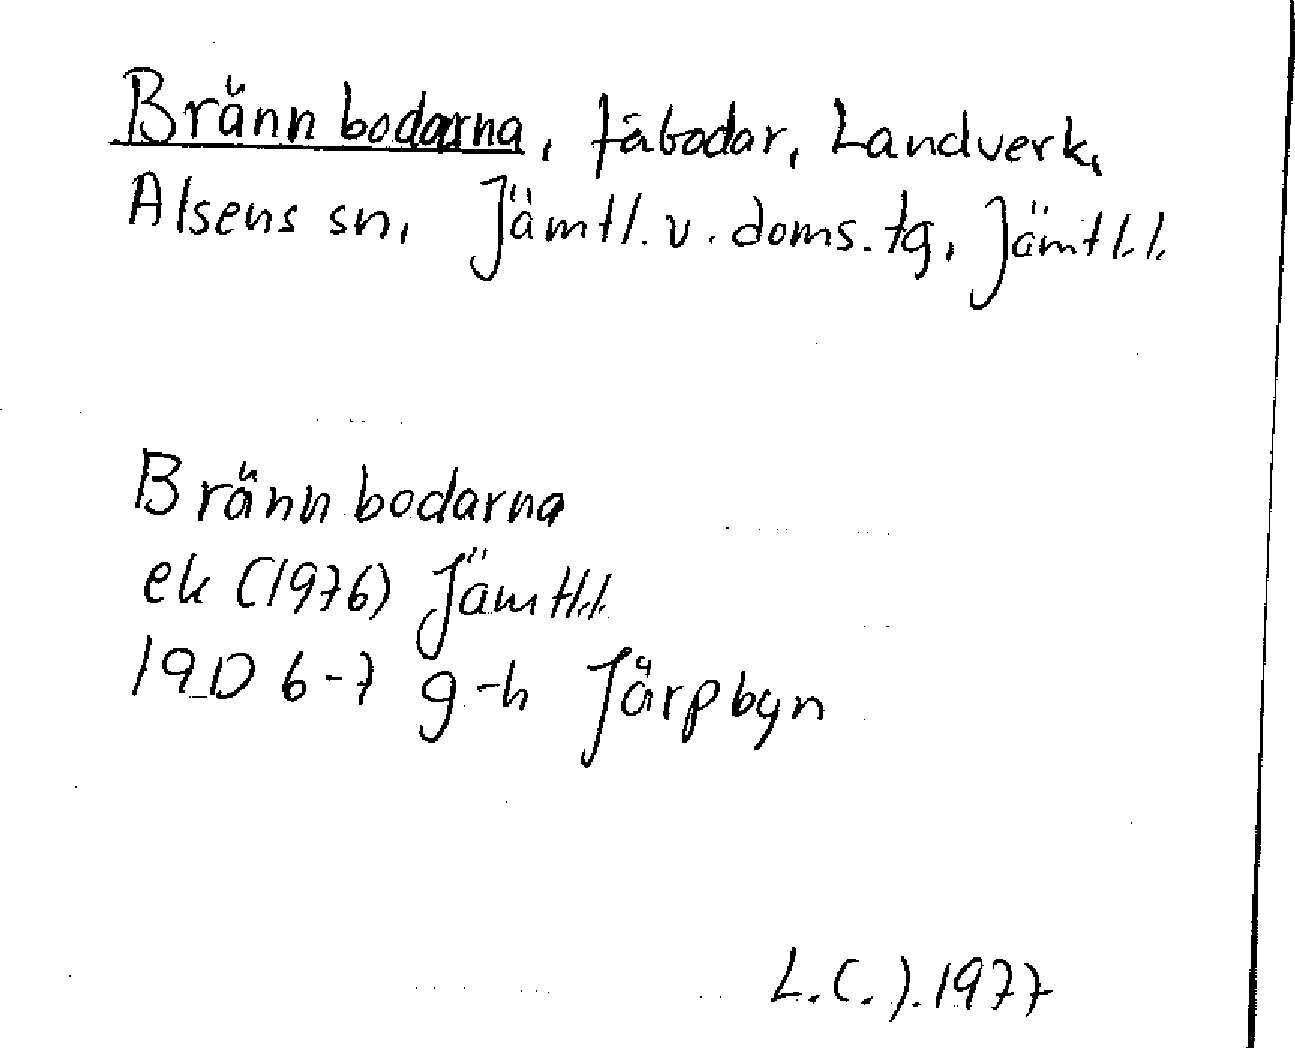 Brännbodarna, fäbodar, Landverk,
Alsens sn, Jämtl. v. doms. tg, Jämtl. l.
Brännbodarna
ek (1976) Jämtl. l.
19D 6-7 g-h Järpbyn
L.C.J. 1977